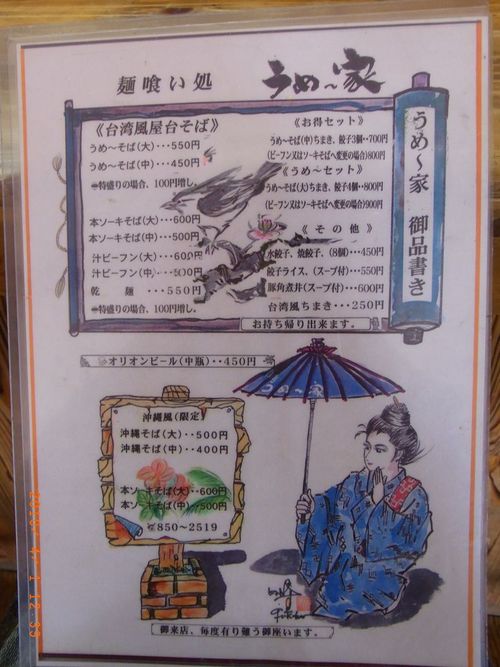 麺喰い処 うめ～家
うめ～家 御品書き
《台湾風屋台そば》
うめ～そば(大)・・550円
うめ～そば(中)・・450円
特盛りの場合、100円増し。
本ソーキそば(大)・・600円
本ソーキそば(中)・・500円
汁ビーフン(大)・・600円
汁ビーフン(中)・・500円
乾麺・・・550円
特盛りの場合、100円増し。
《お得セット》
うめ～そば(中)ちまき、餃子3個・・700円
(ビーフン又はソーキそばへ変更の場合)800円
《うめ～セット》
うめ～そば(大)ちまき、餃子4個・800円
(ビーフン又はソーキそばへ変更の場合)900円
《その他》
水餃子、焼餃子、(8個)・・450円
餃子ライス、(スープ付)・・・550円
豚角煮丼(スープ付)・・・・600円
台湾風ちまき・・・250円
お持ち帰り出来ます。
オリオンビール(中瓶)・・450円
沖縄風(限定)
沖縄そば(大)・・500円
沖縄そば(中)・・400円
本ソーキそば(大)・・600円
本ソーキそば(中)・・500円
☎850～2519
うめ～家
御来店、毎度有り難う御座います。